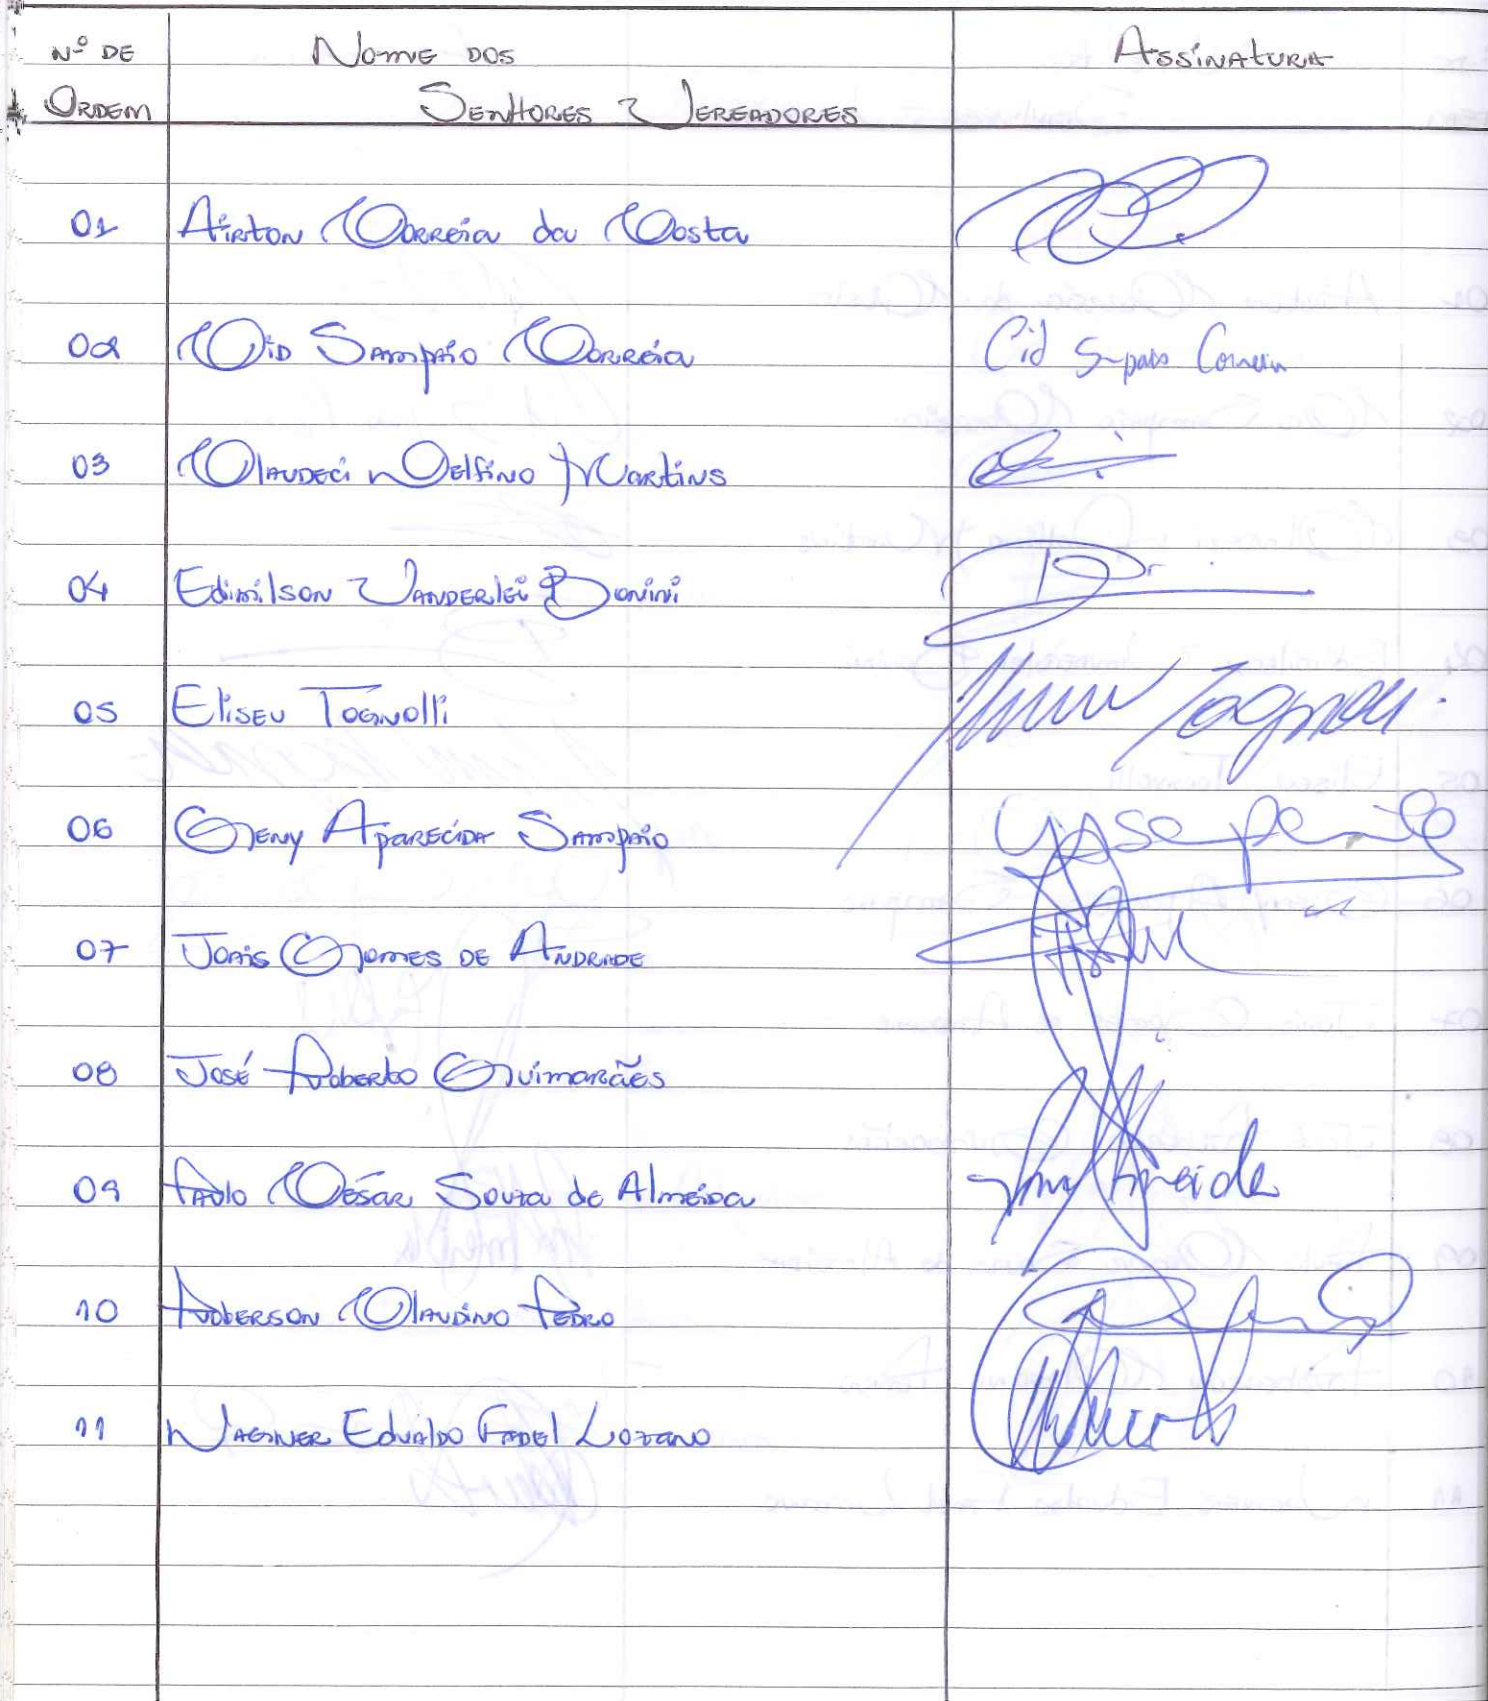 Nº DE Nome dos Assinatura
Ordem Senhores Vereadores
01 Airton Correia da Costa
02 Cid Sampaio Correia Cid Sampaio Correia
03 Claudeci Delfino Martins
04 Edimilson Vanderlei Bonini
05 Eliseu Tognolli Tognolli
06 Geny Aparecida Sampaio
07 Joais Gomes de Andrade
08 José Roberto Guimarães
09 Paulo César Souza de Almeida Almeida
10 Roberson Claudino Pedro
11 Wagner Edvaldo Fadel Lozano